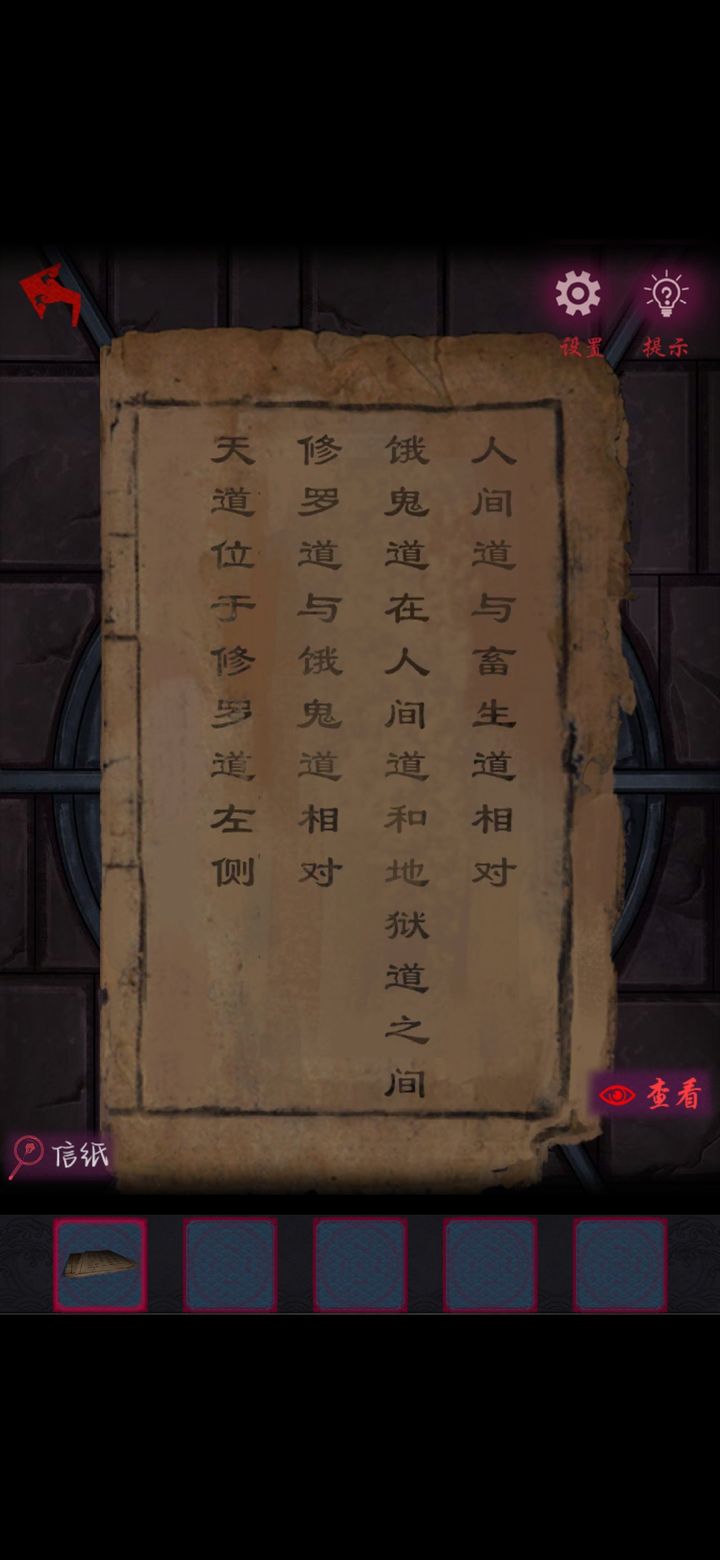 设置
提示
人间道与畜生道相对
饿鬼道在人间道和地狱道之间
修罗道与饿鬼道相对
天道位于修罗道左侧
查看
信纸